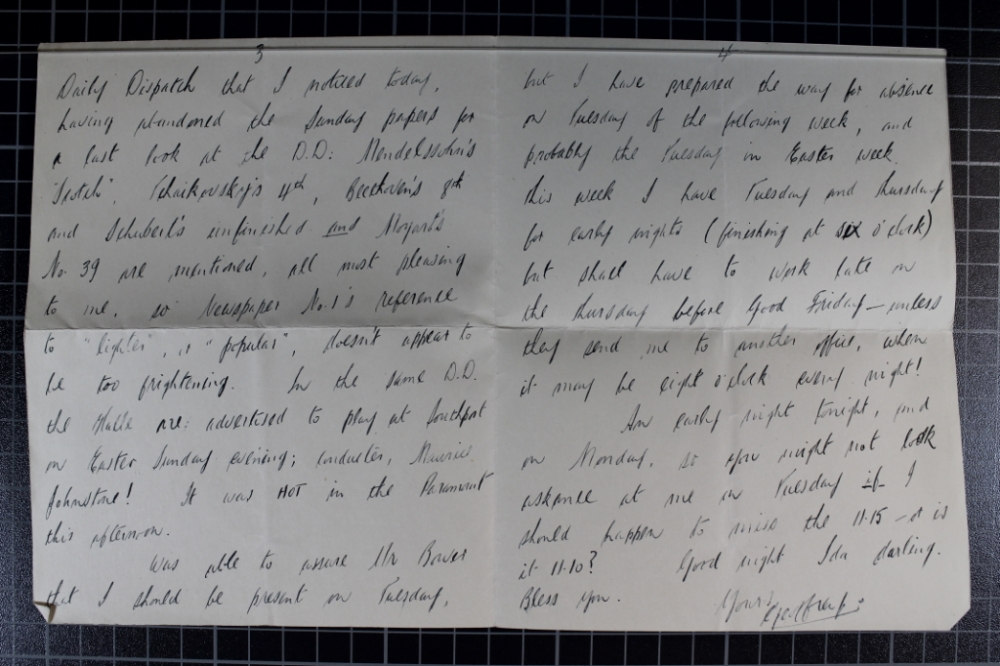 3
Daily Dispatch that I noticed today,
having abandoned the Sunday papers for
a last look at the D.D: Mendelssohn's
"Scotch", Tchaikovsky's 4th, Beethoven's 8th
and Schubert's unfinished and Mozart's
No. 39 are mentioned, all most pleasing
to me, so Newspaper No.1's reference
to "lighter", or "popular", doesn't appear to
be too frightening. In the same D.D.
the Halle are: advertised to play at Southport
on Easter Sunday evening; conductor, Maurice
Johnstone! It was HOT in the Paramount
this afternoon.
Was able to assure Mr Bower
that I should be present on Tuesday,
4
but I have prepared the way for absence
on Tuesday of the following week, and
probably the Tuesday in Easter week.
This week I have Tuesday and Thursday
for early nights (finishing at six o'clock)
but shall have to work late on
the Thursday before Good Friday – unless
they send me to another office, when
it may be eight o'clock every night!
An early night tonight, and
on Monday, so you might not look
askance at me on Tuesday if I
should happen to miss the 11.15 – or is
it 11.10? Good night Ida darling.
Bless you. Yours
Geoffrey.